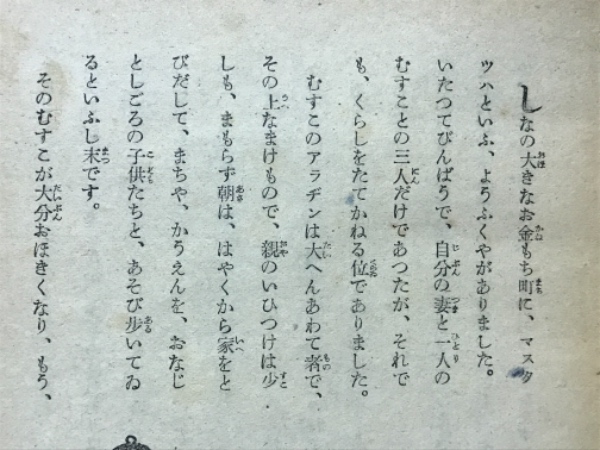 しなの大きなお金もち町に、マスタ
ツハといふ、ようふくやがありました。
いたつてびんばうで、自分の妻と一人の
むすことの三人だけであつたが、それで
も、くらしをたてかねる位でありました。
むすこのアラヂンは大へんあわて者で、
その上なまけもので、親のいひつけは少
しも、まもらず朝は、はやくから家をと
びだして、まちや、かうえんを、おなじ
としごろの子供たちと、あそび歩いてゐ
るといふし末です。
そのむすこが大分おほきくなり、もう、